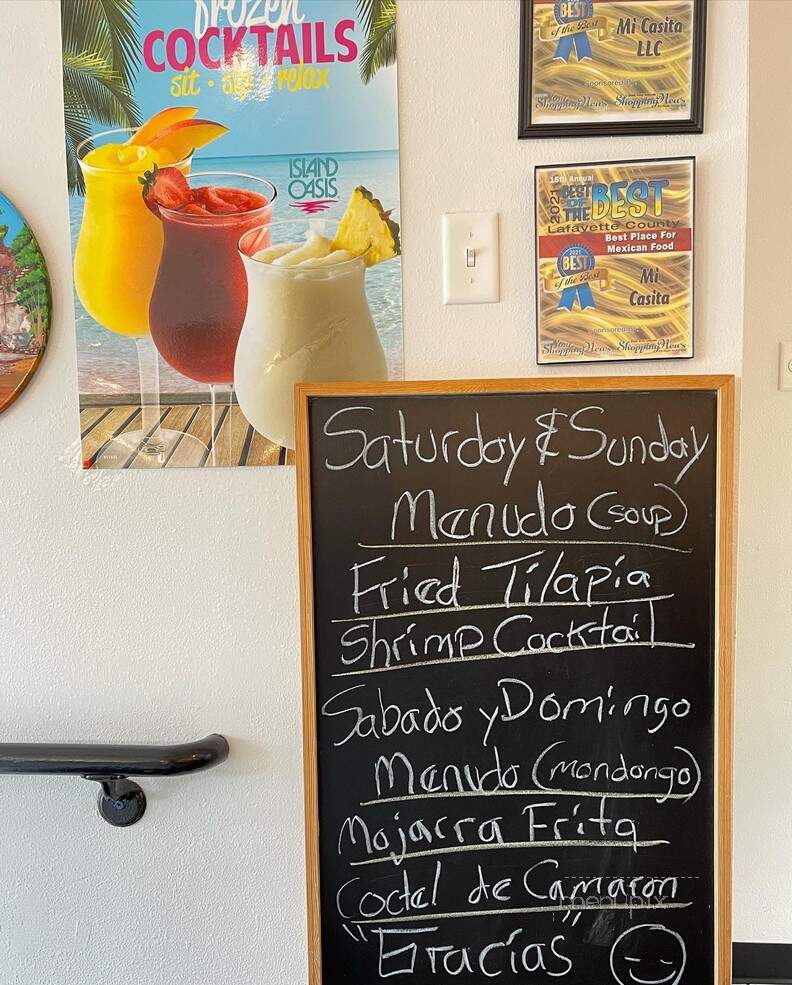 frozen
COCKTAILS
sit • sip • relax
ISLAND
OASIS
BEST
of the Best
Mi Casita
LLC
Sponsored By:
Shopping News Shopping News
15th Annual
2021
BEST
OF
THE BEST
Lafayette County
Best Place For
Mexican Food
2021
BEST
of the Best
Mi
Casita
Sponsored By:
Shopping News Shopping News
Saturday & Sunday
Menudo (soup)
Fried Tilapia
Shrimp Cocktail
Sabado y Domingo
Menudo (mondongo)
Mojarra Frita
Coctel de Camaron
menupix
"Gracias"